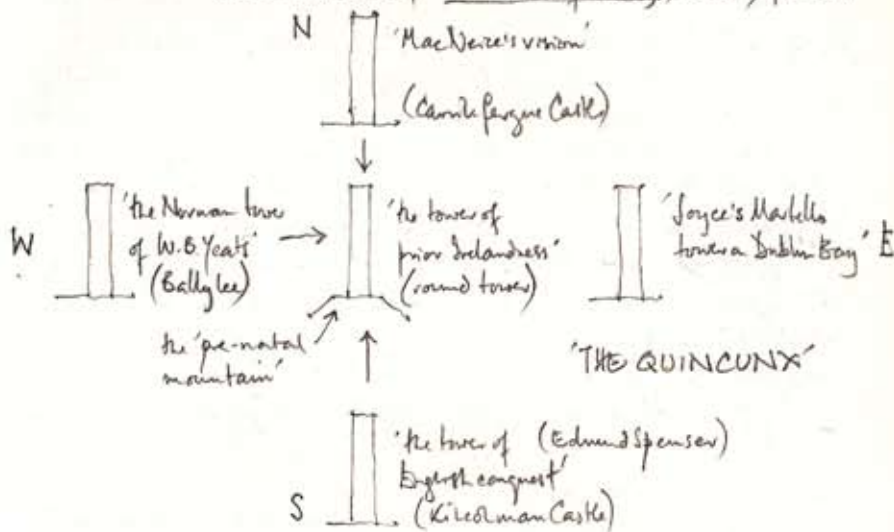 N
'MacNeice's vision'
(Carrickfergus Castle)
W
'the Norman tower
of W.B. Yeats'
(Ballylee)
'the tower of
prior Irelandness'
(round tower)
'Joyce's Martello
tower on Dublin Bay'
E
the 'pre-natal
mountain'
'THE QUINCUNX'
'the tower of (Edmund Spenser)
English conquest'
(Kilcolman Castle)
S